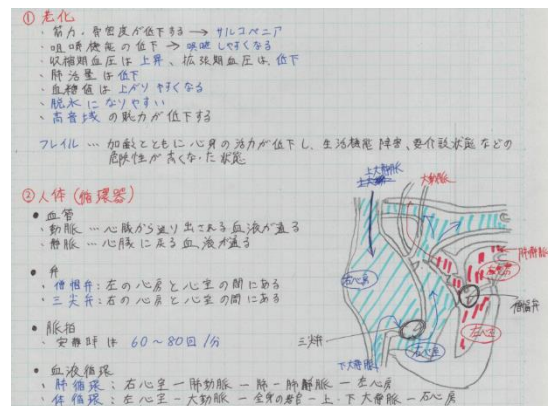 ① 老化
・筋力・骨密度が低下する → サルコペニア
・咀嚼機能の低下 → 誤嚥しやすくなる
・収縮期血圧は上昇、拡張期血圧は、低下
・肺活量は低下
・血糖値は上がりやすくなる
・脱水になりやすい
・高音域の聴力が低下する
フレイル … 加齢とともに心身の活力が低下し、生活機能障害、要介護状態などの
危険性が高くなった状態
② 人体 (循環器)
● 血管
・動脈 … 心臓から送り出される血液が通る
・静脈 … 心臓に戻る血液が通る
● 弁
・僧帽弁:左の心房と心室の間にある
・三尖弁:右の心房と心室の間にある
● 脈拍
・安静時は 60~80回/分
● 血液循環
・肺循環:右心室-肺動脈-肺-肺静脈-左心房
・体循環:左心室-大動脈-全身の器官-上・下大静脈-右心房
上大静脈
大動脈
肺静脈
右心房
左心房
僧帽弁
左心室
三尖弁
右心室
下大静脈